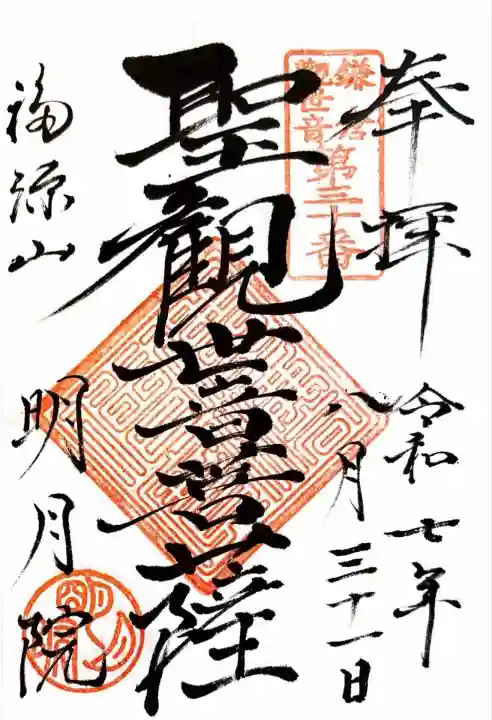 奉拝
令和七年
八月三十一日
鎌倉
観世音
第三十番
聖觀世音菩薩
福源山
明月院